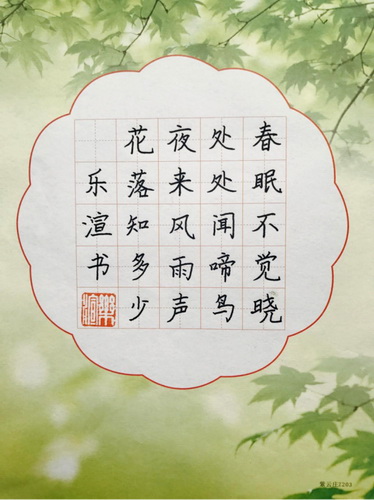 春眠不觉晓
处处闻啼鸟
夜来风雨声
花落知多少
乐渲书